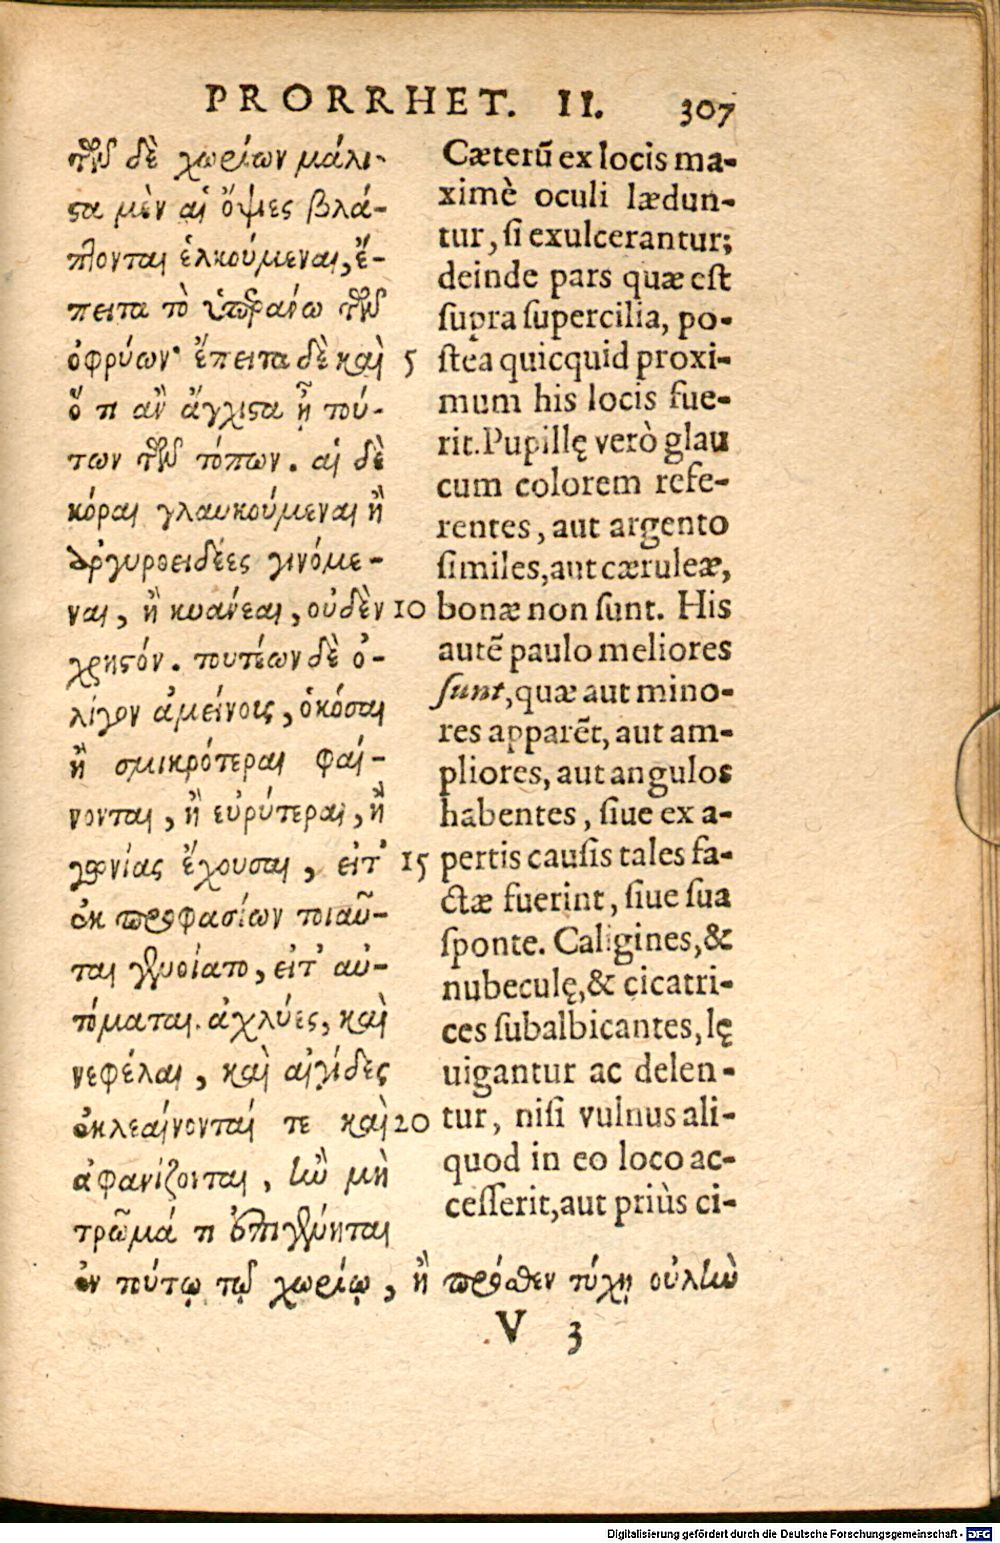 PRORRHET. II. 307
τῶν δὲ χωρίων μάλι-
ϛα μὲν αἱ ὄψιες βλά-
πτονται ἑλκούμεναι, ἔ-
πειτα τὸ ὑπεράνω τῶν
ὀφρύων· ἔπειτα δὲ καὶ 5
ὅ τι ἂν ἄγχιϛα ᾖ τού-
των τῶν τόπων. αἱ δὲ
κόραι γλαυκούμεναι ἢ
ἀργυροειδέες γινόμε-
ναι, ἢ κυάνεαι, οὐδὲν 10
χρηϛόν. τουτέων δὲ ὀ-
λίγον ἀμείνοις, ὁκόσαι
ἢ σμικρότεραι φαί-
νονται, ἢ εὐρύτεραι, ἢ
γωνίας ἔχουσαι, εἴτ' 15
ἐκ προφασίων τοιαῦ-
ται γενοίατο, εἴτ' αὐ-
τόμαται. ἀχλύες, καὶ
νεφέλαι, καὶ αἰγίδες
ἐκλεαίνονταί τε καὶ 20
ἀφανίζονται, ἢν μὴ
τρῶμά τι ἐπιγένηται
ἐν τούτῳ τῷ χωρίῳ, ἢ πρόσθεν τύχῃ οὐλὴν
Cæterũ ex locis ma-
ximè oculi lædun-
tur, ſi exulcerantur;
deinde pars quæ eſt
ſupra ſupercilia, po-
ſtea quicquid proxi-
mum his locis fue-
rit. Pupillę verò glau
cum colorem refe-
rentes, aut argento
ſimiles, aut cæruleæ,
bonæ non ſunt. His
autẽ paulo meliores
ſunt, quæ aut mino-
res apparẽt, aut am-
pliores, aut angulos
habentes, ſiue ex a-
pertis cauſis tales fa-
ctæ fuerint, ſiue ſua
ſponte. Caligines, &
nubeculę, & cicatri-
ces ſubalbicantes, lę
uigantur ac delen-
tur, niſi vulnus ali-
quod in eo loco ac-
ceſſerit, aut priùs ci-
V 3
Digitalisierung gefördert durch die Deutsche Forschungsgemeinschaft - DFG